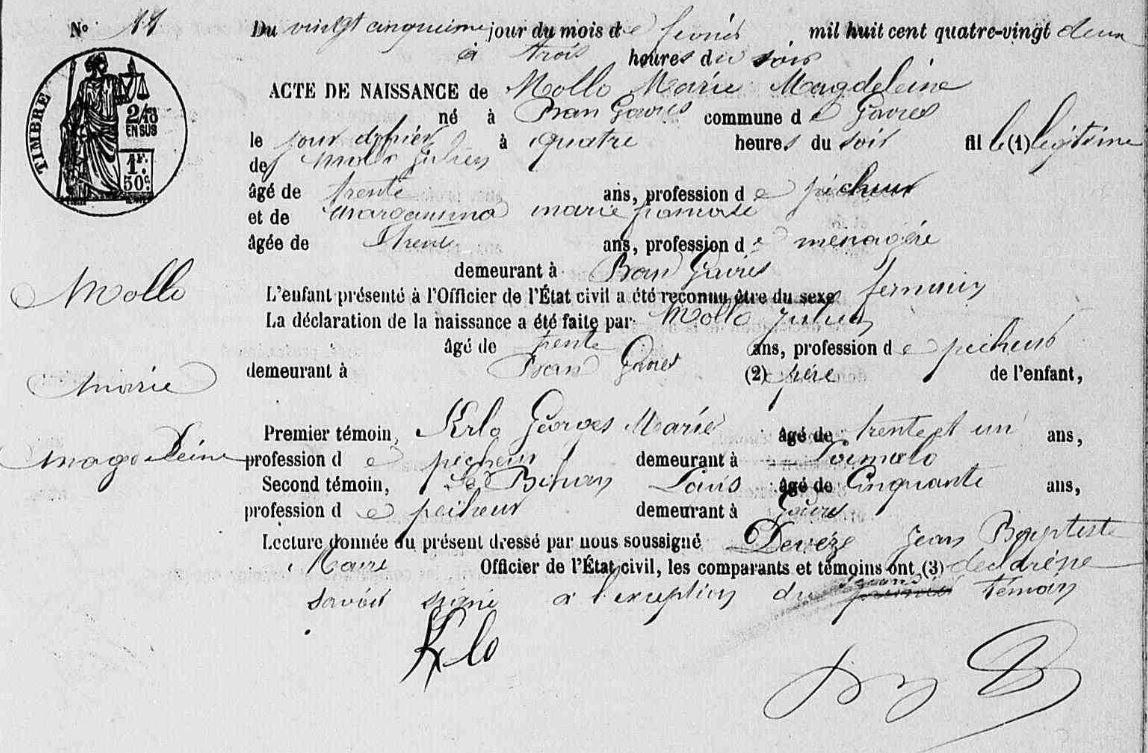 N° 11 Du vingt cinquieme jour du mois de fevrier mil huit cent quatre-vingt deux
à trois heures du soir
TIMBRE
2/10
EN SUS
1F.
50c.
ACTE DE NAISSANCE de Mollo Marie Magdeleine
né à Ban Gavres commune de Gavres
le jour d'hier à quatre heures du soir fille (1) légitime
de Mollo Julien
âgé de trente ans, profession de pêcheur
et de marie
âgée de trente ans, profession de ménagère
demeurant à Ban Gavres
L'enfant présenté à l'Officier de l'État civil a été reconnu être du sexe feminin
La déclaration de la naissance a été faite par Mollo Julien
âgé de trente ans, profession de pecheur
demeurant à Ban Gavres (2) père de l'enfant,
Mollo
Marie
Magdeleine
Premier témoin, Krlo Georges Marie âgé de trente et un ans,
profession de pecheur demeurant à
Second témoin, Le Bihan Louis âgé de Cinquante ans,
profession de pecheur demeurant à Gavres
Lecture donnée du présent dressé par nous soussigné Devèze Jean Baptiste
Maire Officier de l'État civil, les comparants et témoins ont (3)
savoir signé a l'exception du second témoin
Krlo